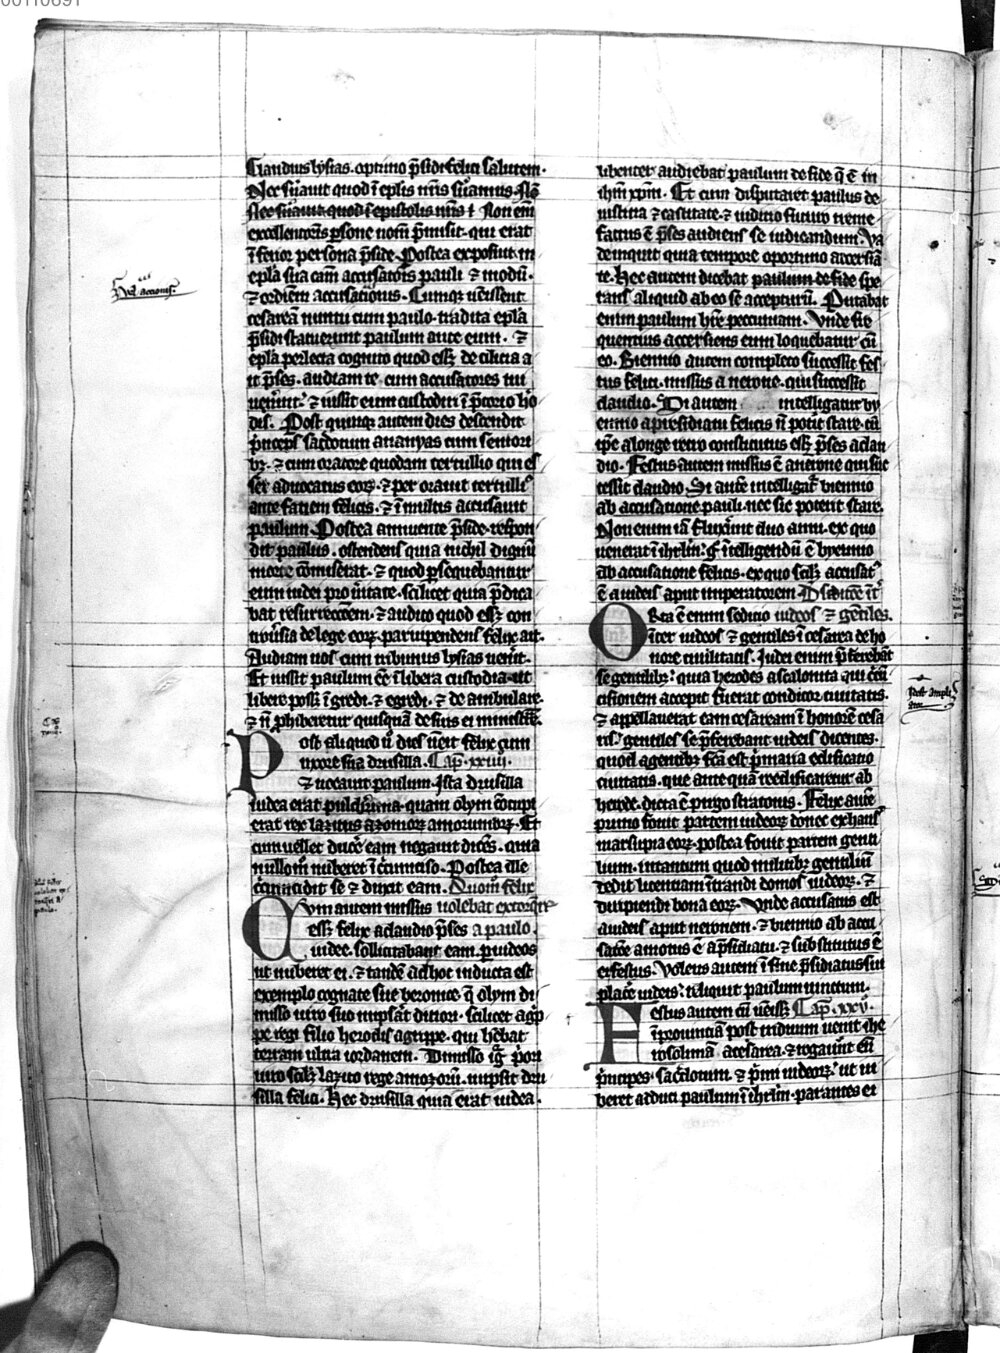 00110691
Claudius lysias. optimo p̄sidi felici salutem.
Nec sūauit quod ī eplis nr̄is sūamus. Nō
nec sūauit quod ī epistolis nr̄is ł Non em̄
excellentoris p̄sone nom̄ p̄misit. qui erat
īferior persona p̄side. Postea exposuit in
ep̄la sua cām accusatoris pauli ⁊ modū.
⁊ ordinem accusationis. Cumq; uēissent
cesaream nuntii cum paulo. tradita ep̄la
p̄sidi statuerunt paulum ante eum. ⁊
ep̄la perlecta cognito quod eēt de cilicia a
it p̄ses. audiam te cum accusatores tui
uenint. ⁊ iussit eum custodiri ī p̄torio ho
dis. Post quinq; autem dies descendit
p̄nceps sacdotum ananyas cum seniori
b;. ⁊ cum oratore quodam tertullio qui es
set aduocatus eor;. ⁊ per orauit tertulli᷒
ante faciem felicis. ⁊ ī multis accusauit
paulum. Postea annuente p̄side. respon
dit paulus. ostendens quia nichil dignū
morte cōmiserat. ⁊ quod p̄sequebantur
eum iudei pro ūitate. scilicet quia p̄dica
bat resurrectōem. ⁊ audito quod eēt con
trou̾sia de lege eor;. paruipendens felix ait.
Audiam uos cum tribunus lysias uenit.
Et iussit paulum eē ī libera custodia. ut
libere poss; īgredi. ⁊ egredi. ⁊ de ambulare.
⁊ n̄ p̄hiberetur quisquā de suis ei ministrē.
Post aliquod ū dies uēit felix cum
uxore sua drusilla. Cap̄. xxiiij.
⁊ uocauit paulum. Ista drusilla
iudea erat pulcherima. quam olym cōcupi
erat rex lazitus azomor; amorumdor;. Et
cum uellet ducē eam negauit dicēs. quia
nullom̄ nuberet ī cīcunciso. Postea ille
cīcuncidit se ⁊ duxit eam. Quom̄ felix
Cum autem missus uolebat extorq̄re
eēt felix a claudio p̄ses a paulo.
iudee. sollicitabant eam. p̄ iudeos
ut nuberet ei. ⁊ tandē ad hoc inducta est
exemplo cognate sue beronice. q̄ olym di
misso uiro suo nupsāt ditiori. scilicet agp̄
pe regi filio herodis agrippe. qui hēbat
terram ultra iordanem. Dimisso ig̾ p̄ori
uiro scil; lazito rege amozorū. nupsit dru
silla felici. Hec drusilla quia erat iudea.
libenter audiebat paulum de fide q̄ ē in
ihm̄ xp̄m. Et cum disputaret paulus de
iustitia ⁊ castitate. ⁊ iuditio futuro treme
factus ē p̄ses audiens se iudicandum. Va
de inquit quia tempore oportuno accersiā
te. Hec autem dicebat paulum de fide spe
rans aliquid ab eo se accepturū. Putabat
enim paulum hr̄e peccuniam. Vnde fre
quentius accersiens eum loquebatur cū
eo. Biennio autem completo successit fes
tus felici. missus a nerone. qui successit
claudio. Si autem intelligatur by
ennio a presidiatu felicis n̄ potīt stare. cū
tp̄e a longe retro constitutus eēt p̄ses a clau
dio. Festus autem missus ē a nerone qui suc
cessit claudio. Si autē intelligat̄ biennio
ab accusatione pauli. nec sic potent stare.
Non enim iā fluxīnt duo anni. ex quo
uenerat ī ihrlm̄. g̾ ītelligendū ē byennio
ab accusatione felicis. ex quo scil; accusat᷒
ē a iudeis aput imperatorem.
Orta ē enim seditio iudeos ⁊ gentiles.
īter iudeos ⁊ gentiles ī cesarea de ho
nore ciuilitatis. Iudei enim p̄ferebāt
se gentilib;. quia herodes ascalonita qui cīcū
cisionem accepit fuerat conditor ciuitatis.
⁊ appellauerat eam cesaream ī honorē cesa
ris. gentiles se p̄ferebant iudeis dicentes.
quod a gentib; fc̄a est p̄maria edificatio
ciuitatis. que ante quā reedificaretur ab
herode. dicta ē pirgo stratonis. Felix autē
primo fouit partem iudeor; donec exhaus᷒
marsupia eor;. postea fouit partem genti
lium. intantum quod militib; gentiliū
dedit licentiam ītrandi domos iudeor;. ⁊
diripiendi bona eor;. Vnde accusatus est
a iudeis aput neronem. ⁊ biennio ab accu
satōe amotus ē a p̄sidiatu. ⁊ substitutus ē
ei festus. Volens autem ī fine p̄sidiatus sui
placē iudeis. reliquit paulum iunctum.
Festus autem cū uēiss; Cap̄. xxv.
ī prouinciā post triduum uenit ihe
rosolimā a cesarea. ⁊ rogauīt eū
p̄ncipes sacdotum. ⁊ p̄mi iudeor;. ut iu
beret adduci paulum ī ihrlm̄. parantes ei